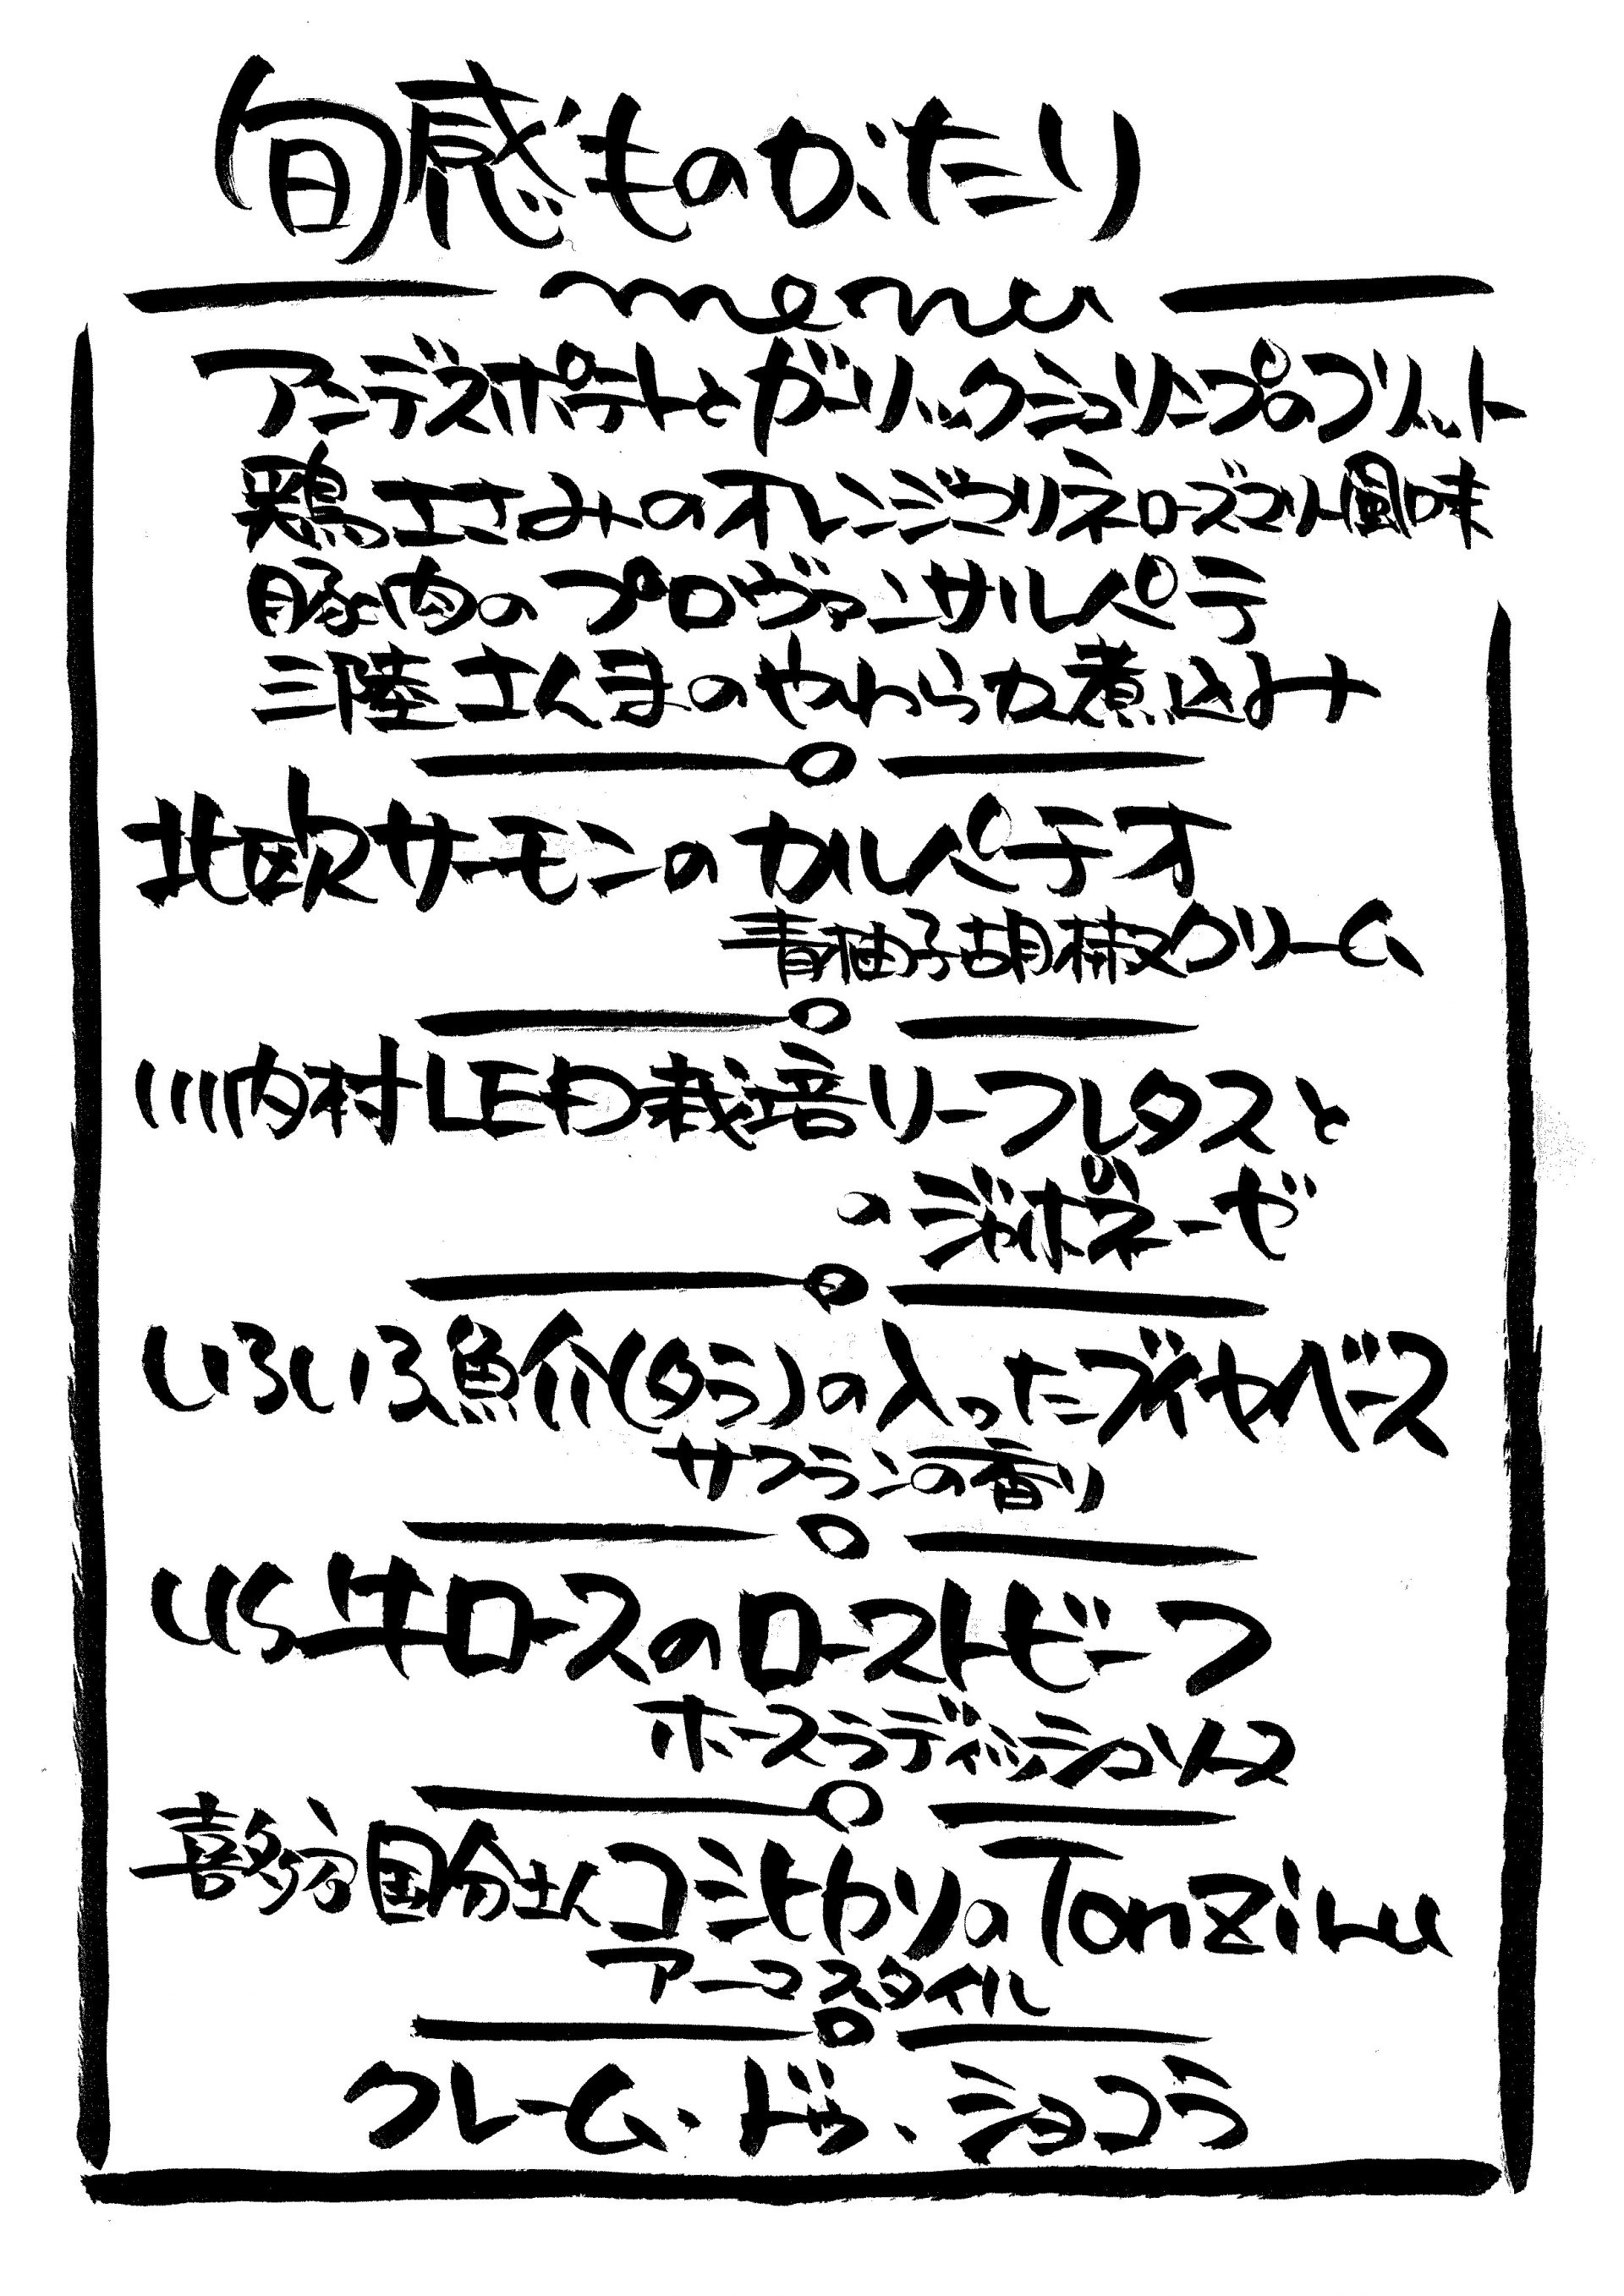 旬感ものがたり
menu
アンデスポテトとガーリックシュリンプのフリット
鶏ささみのオレンジマリネローズマリー風味
豚肉のプロヴァンサルパテ
三陸さんまのやわらか煮込み
北欧サーモンのカルパチオ
青柚子胡椒クリーム
川内村LED栽培リーフレタスと
のジャポネーゼ
いろいろ魚介(タラ)の入ったブイヤベース
サフランの香り
US牛ロースのローストビーフ
ホースラディッシュソース
喜多方国分さんコシヒカリのTonZiru
アーマスタイル
クレーム・ドゥ・ショコラ